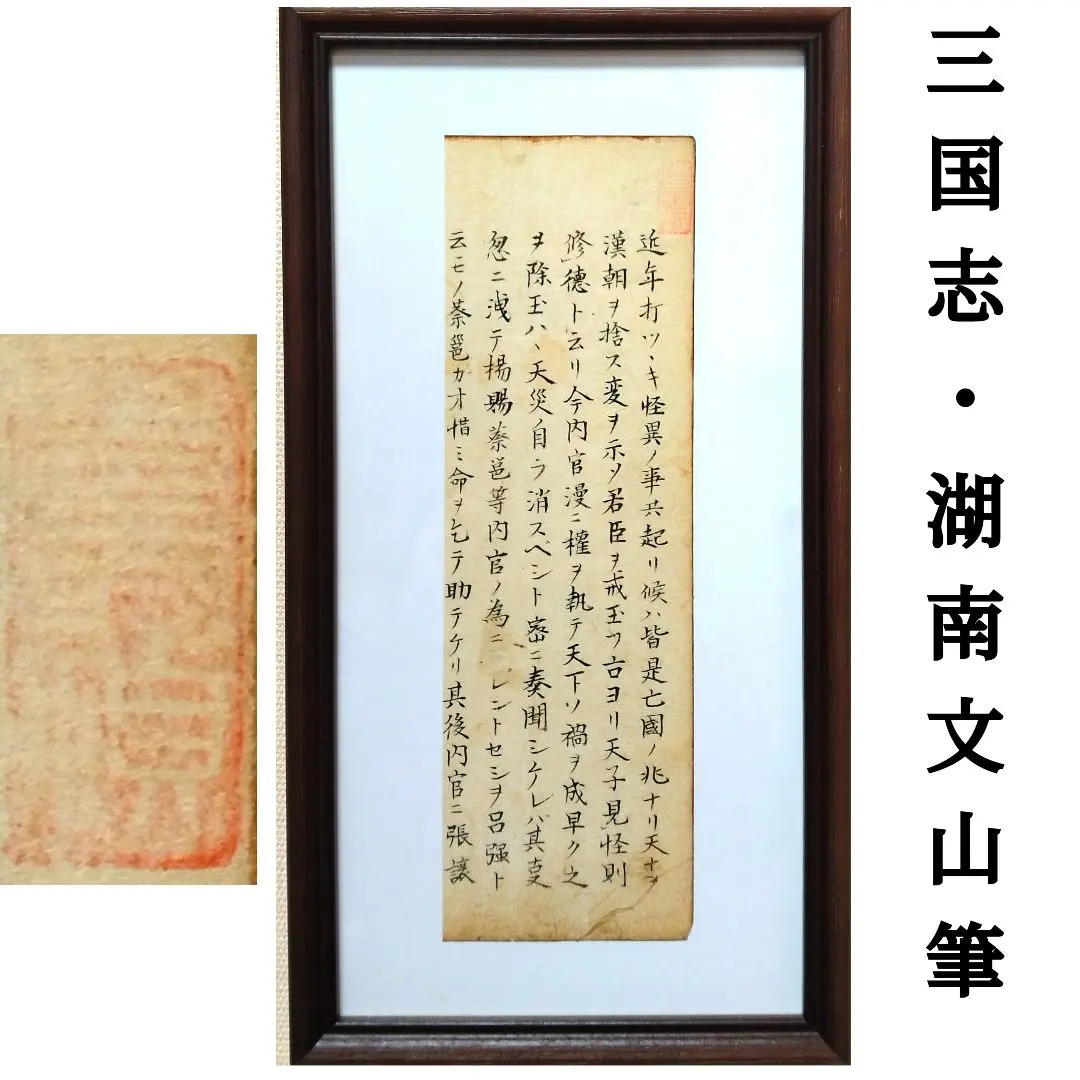 三国志・湖南文山筆
近年打ツヽキ怪異ノ事共起リ候ハ皆是亡國ノ兆ナリ天
漢朝ヲ捨ス変ヲ示ソ君臣ヲ戒玉フ古ヨリ天子見怪則
修德ト云リ今内官漫ニ權ヲ執テ天下ソ禍ヲ成早ク之
ヲ除玉ハヽ天災自ラ消スベシト密ニ奏聞シケレバ其
忽ニ洩テ楊賜蔡邕等内官ノ為ニ レントセシヲ呂强ト
云モノ蔡邕カオ惜ミ命ヲ乞テ助テケリ其後内官ニ張讓